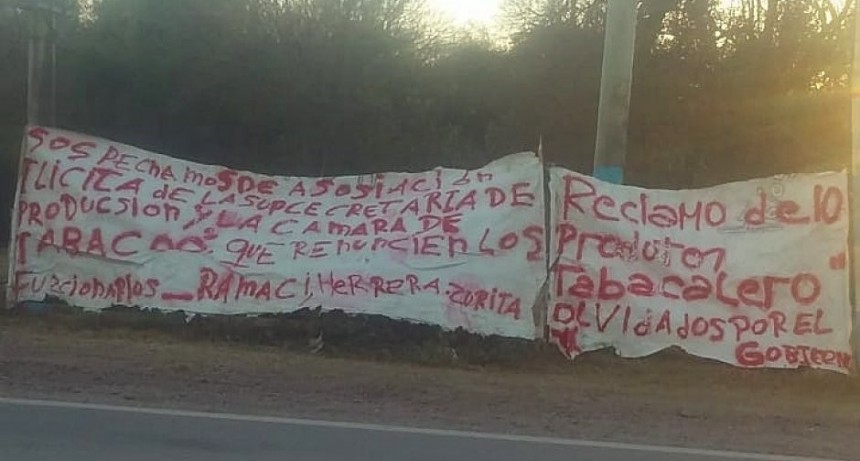 SOSPECHAMOS DE ASOSIACIÓN
ILICITA de LA SUPCECRETARIA DE
PRODUCSION y LA CAMARA DE
TABACOO: QUE RENUNCIEN LOS
FUNCIONARIOS _ RAMACI, HERRERA. ZURITA
Reclamo de lo
Produtor
Tabacalero
OLVIdADOS POR EL
GOBIERN